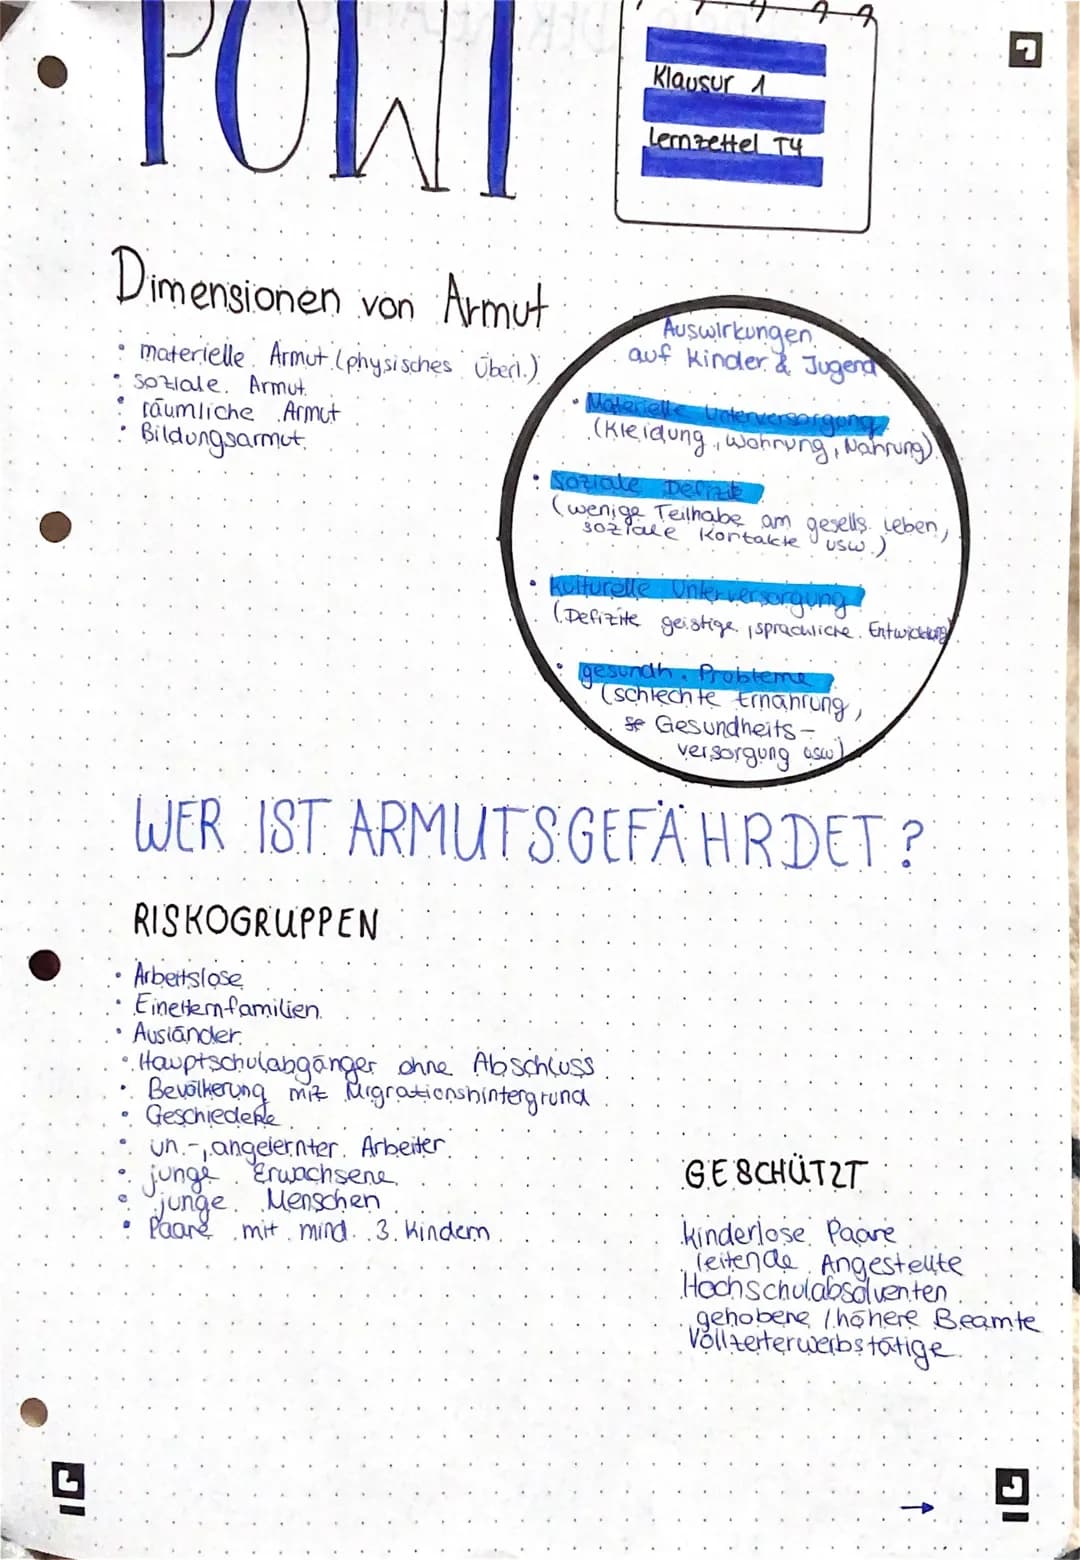 POWI
Klausur 1
Lernzettel T4
Dimensionen von Armut
• materielle Armut (physisches Überl.)
• soziale Armut
• räumliche Armut
• Bildungsarmut
Auswirkungen
auf Kinder & Jugend
• Materielle Unterversorgung
(Kleidung, Wohnung, Nahrung)
• soziale Defizite
(wenige Teilhabe am gesells. Leben,
soziale Kontakte usw.)
• kulturelle Unterversorgung
(Defizite geistige, sprachliche Entwicklung)
• gesundh. Probleme
(schlechte Ernährung,
Gesundheits-
versorgung usw)
WER IST ARMUTSGEFÄHRDET?
RISKOGRUPPEN
• Arbeitslose
• Einelternfamilien
• Ausländer
• Hauptschulabgänger ohne Abschluss
• Bevölkerung mit Migrationshintergrund
• Geschiedene
• un-, angelernter Arbeiter
• junge Erwachsene
• junge Menschen
• Paare mit mind. 3 Kindern
GESCHÜTZT
kinderlose Paare
leitende Angestellte
Hochschulabsolventen
gehobene / höhere Beamte
Vollzeiterwerbstätige